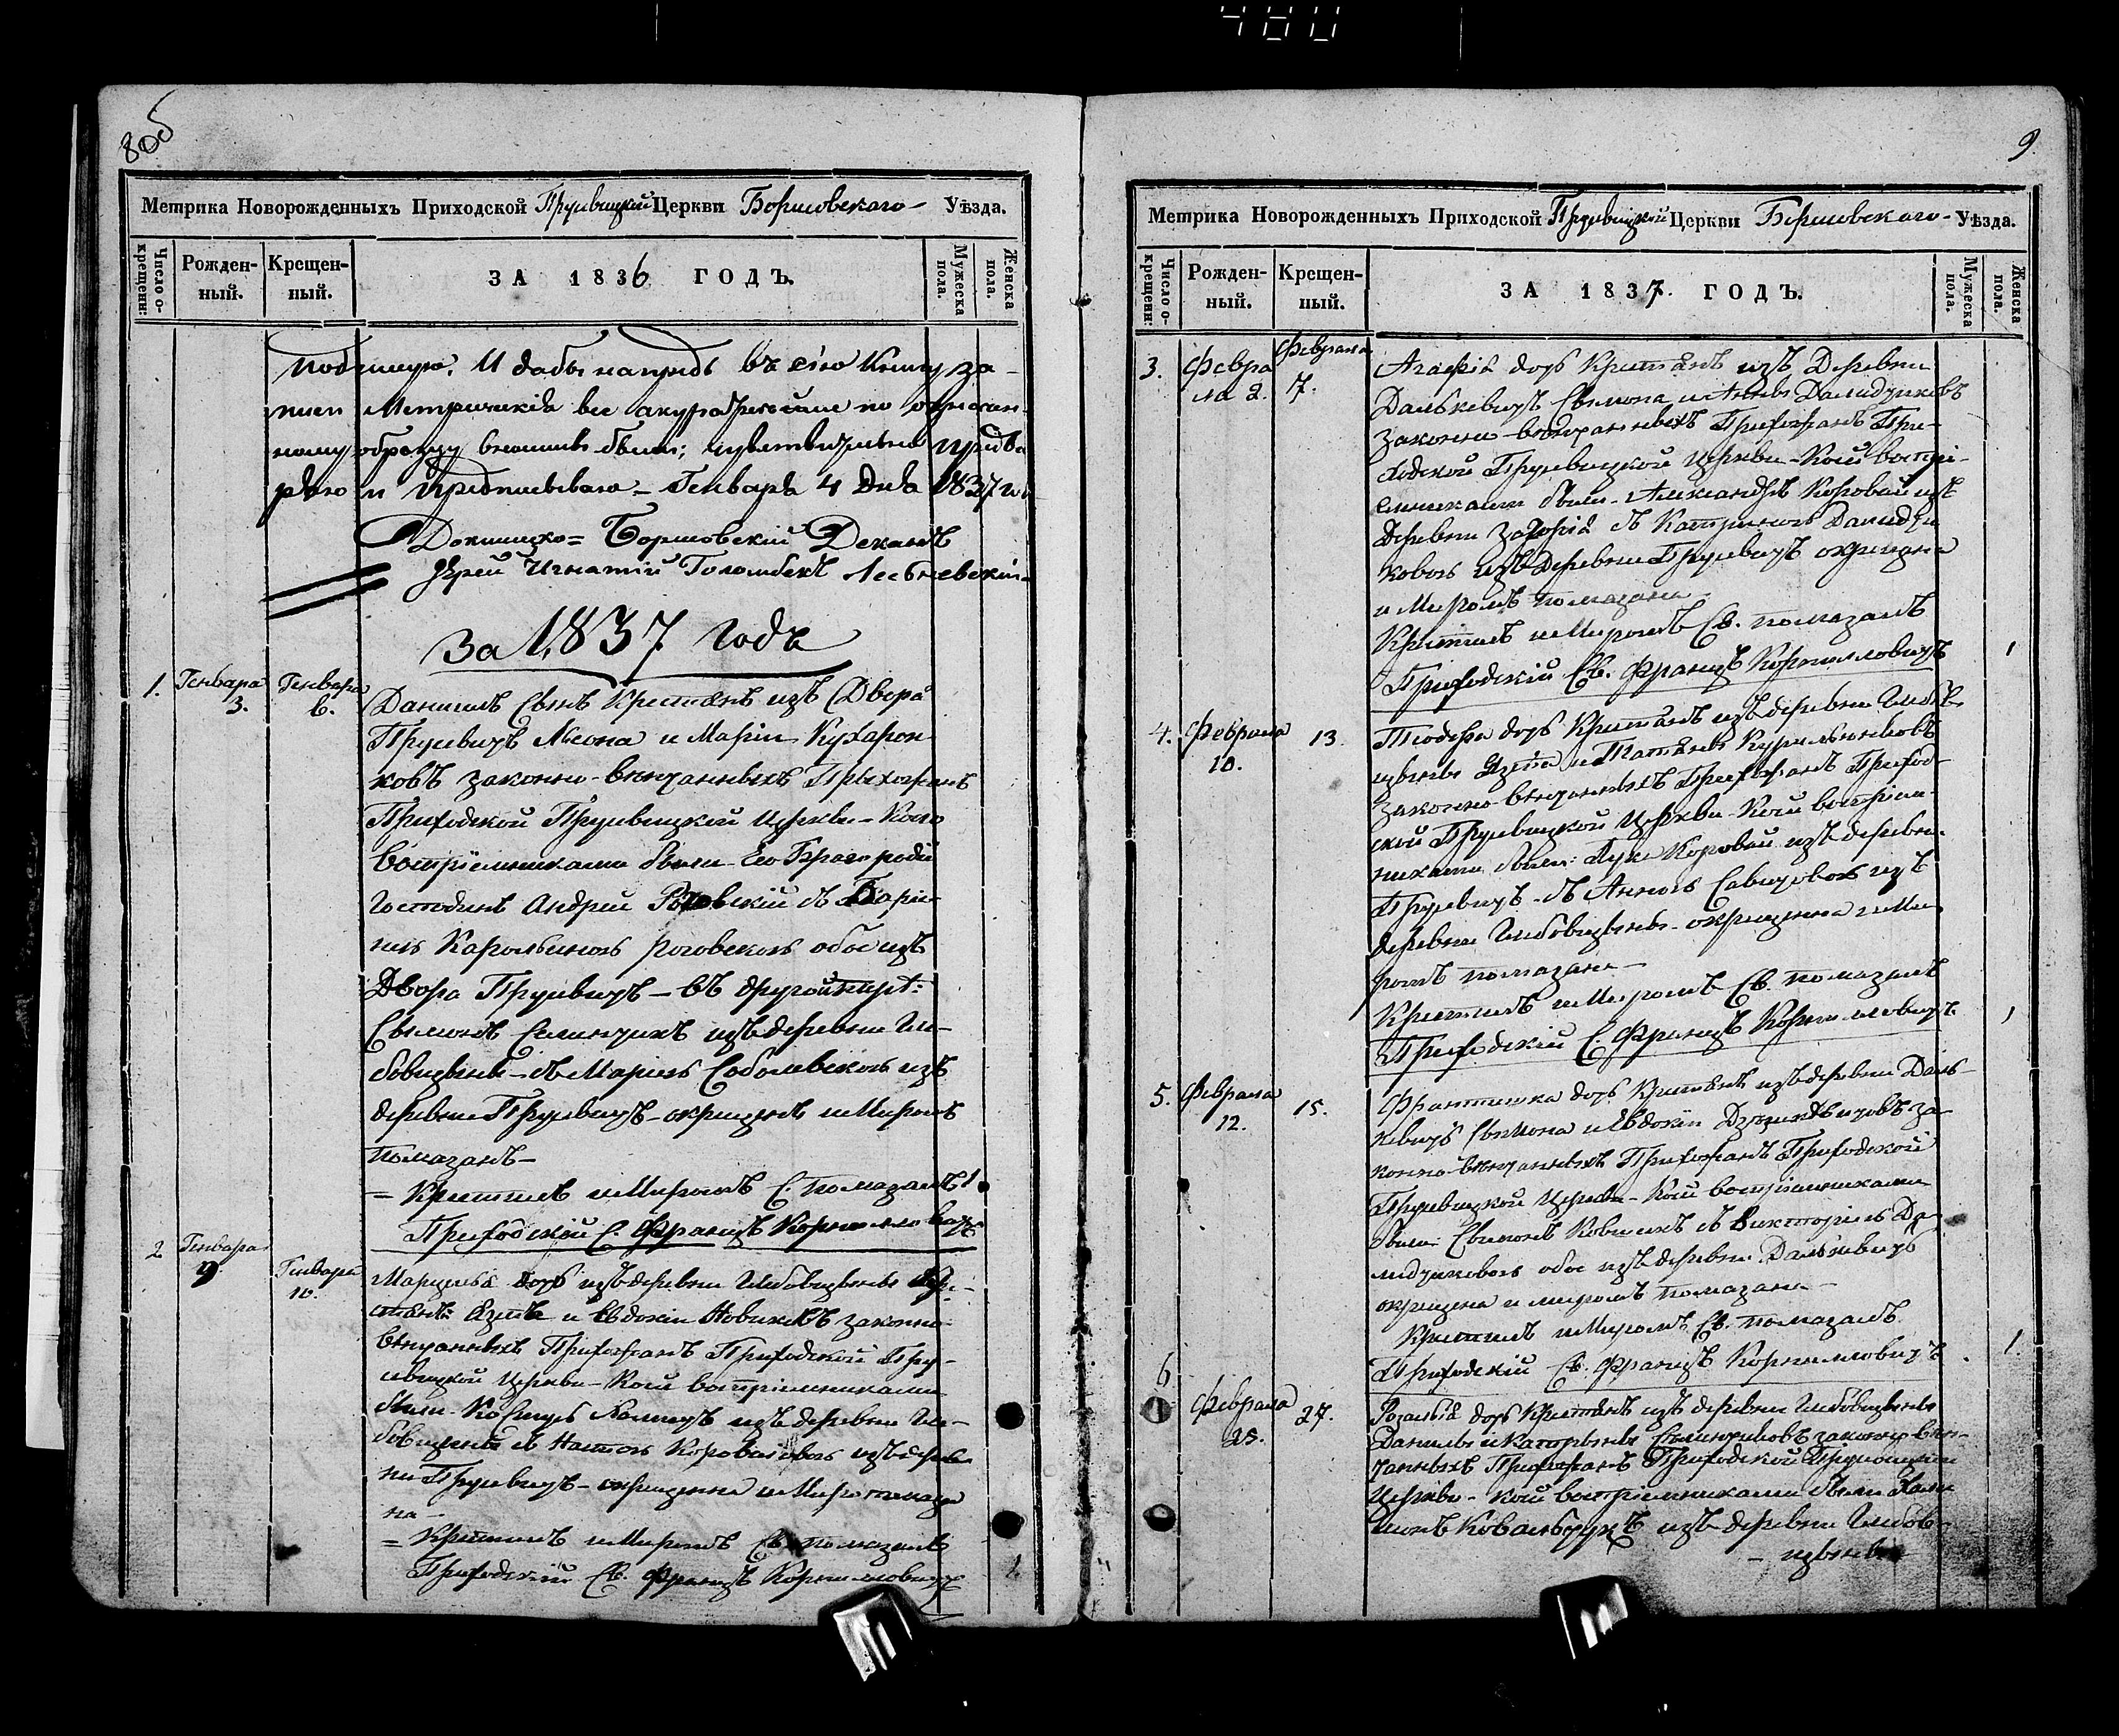 480
8об
Метрика Новорожденныхъ Приходской Пруевицкой Церкви Борисовскаго Уѣзда.
Число окрещенн:
Рожденный.
Крещенный.
ЗА 1836 ГОДЪ.
Мужеска пола.
Женска пола.
И дабы напредь въ сію Книгу за-
писи Метрическія все акуратнейше по
ному образцу вносимы были;
и предписываю – Генваря 4 дня 1837 го
Докшицко = Борисовскій Деканъ
Іерей Игнатій Голомбекъ
За 1837 годъ
1. Генваря 3. Генваря 6.
Даніилъ сынъ Крестянъ изъ Двора
Пруевичъ Леона и Маріи Кухарон
ковъ законно-венчанныхъ Прихожанъ
Приходской Пруевицкой Церкви – Коего
воспріемниками были Его Благородіе
Господинъ Андрей Роговскій съ Бары-
нею Карольиною Роговскою обое изъ
Двора Пруевичъ – въ другой парѣ:
Сымонъ Селинчикъ изъ деревни Гли-
бовцыны – съ Маріею Соболевскою изъ
деревни Пруевичъ – окрещенъ и Миромъ
помазанъ –
= Крестилъ и Миромъ С. помазалъ 1
Приходскій С. Францъ Корнилловичъ
2 Генваря 9 Генваря 10.
Марцеля дочь изъ деревни Глибовцыны Кре-
стянъ: Язепа и Евдокіи Новиковъ законно
венчанныхъ Прихожанъ Приходской Пру-
евицкой Церкви – Коей воспріемниками
были изъ деревни Гли-
бовцыны съ Настою Короваіовою изъ дерев
ни Пруевичъ – окрещенна и Миро помаза
на –
= Крестилъ и Миромъ Св. помазалъ
Приходскій Св. Францъ Корнилловичъ
9.
Метрика Новорожденныхъ Приходской Пруевицкой Церкви Борисовскаго Уѣзда.
Число окрещенн:
Рожденный.
Крещенный.
ЗА 1837. ГОДЪ.
Мужеска пола.
Женска пола.
3. Февраля 2. Февраля 7.
Агафія дочь Крестянъ изъ Деревни
Далькевичъ Сымона и Анны Далидчиковъ
законно-венчанныхъ Прихожанъ При-
ходской Пруевицкой Церкви – Коей воспрі-
емниками были – Александръ Коровай изъ
Деревни Загорія съ Катериною Далидчи
ковою изъ Деревни Пруевичъ окрещена
и Миромъ помазана –
Крестилъ и Миромъ Св. помазалъ
Приходскій Св. Францъ Корнилловичъ 1
4. Февраля 10. 13.
Тіодора дочь Крестянъ изъ деревни Глибов
цыны Язепа и Татяны Курильчиковъ
законно-венчанныхъ Прихожанъ Приход-
ской Пруевицкой Церкви – Коей воспріем-
никами были: Лука Коровай изъ деревни
Пруевичъ – съ Анною Савичовою изъ
деревни Глибовцыны – окрещенна и Ми-
ромъ помазана –
Крестилъ и Миромъ Св. помазалъ
Приходскій С. Францъ Корнилловичъ 1
5. Февраля 12. 15.
Франтишка дочь Крестянъ изъ деревни Даль-
кевичъ Сымона и Евдокіи за-
конно-венчанныхъ Прихожанъ Приходской
Пруевицкой Церкви – Коей воспріемниками
были: Сымонъ Новикъ съ Викторіею Да-
лидчиковою обое изъ деревни Далькевичъ
окрещена и миромъ помазана –
Крестилъ и Миромъ Св. помазалъ
Приходскій Св. Францъ Корнилловичъ 1.
6 Февраля 25. 27.
Розалія дочь Крестянъ изъ деревни Глибовцыны
Данилы и Катерыны Селинчиковъ законно вен-
чанныхъ Прихожанъ Приходской Пруевицкой
Церкви – коей воспріемниками были
Ковальчукъ изъ деревни Глибов-
– цыны